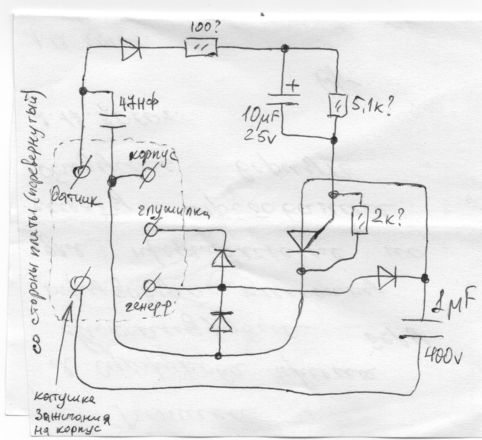 100?
47нф
+
10μF
25v
5,1к?
корпус
датчик
глушилка
2к?
генер
1μF
400v
со стороны платы (перевернутый)
катушка
зажигания
на корпус